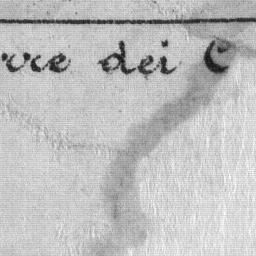 rre dei C